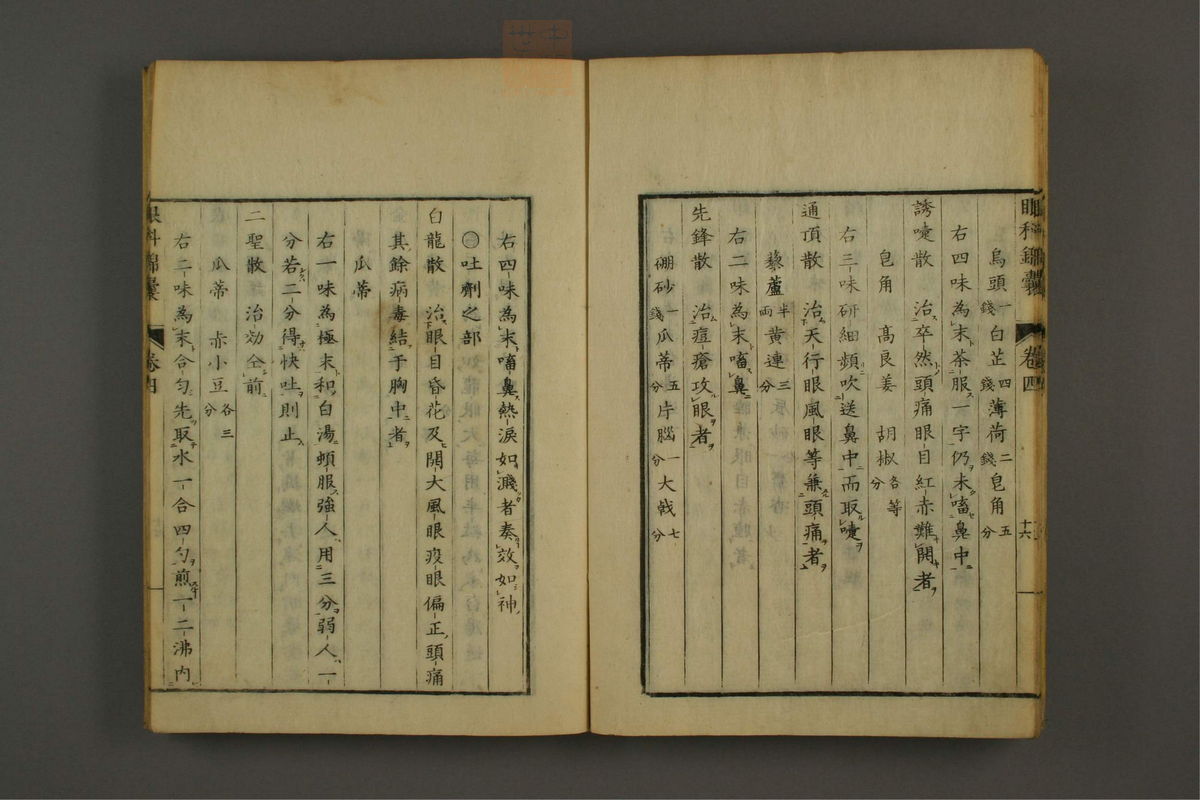 眼科錦囊 卷四 十六
烏頭一錢 白芷四錢 薄荷二錢 皂角五分
右四味為末茶服一字仍末㗜鼻中
誘嚏散 治卒然頭痛眼目紅赤難開者
皂角 高良姜 胡椒各等分
右三味研細頻吹送鼻中而取嚏
通頂散 治天行眼風眼等兼頭痛者
藜蘆半兩 黃連三分
右二味為末㗜鼻
先鋒散 治痘瘡攻眼者
硼砂一錢 瓜蒂五分 片腦一分 大戟七分
右四味為末㗜鼻熱淚如濺者奏效如神
㊂吐劑之部
白龍散 治眼目昏花及閧大風眼疫眼偏正頭痛
其餘病毒結于胸中者
瓜蒂
右一味為極末和白湯頓服強人用三分弱人一
分若二分得快吐則止
二聖散 治効仝前
瓜蒂 赤小豆各三分
右二味為末合勻先取水一合四勺煎一二沸內
眼科錦囊 卷四